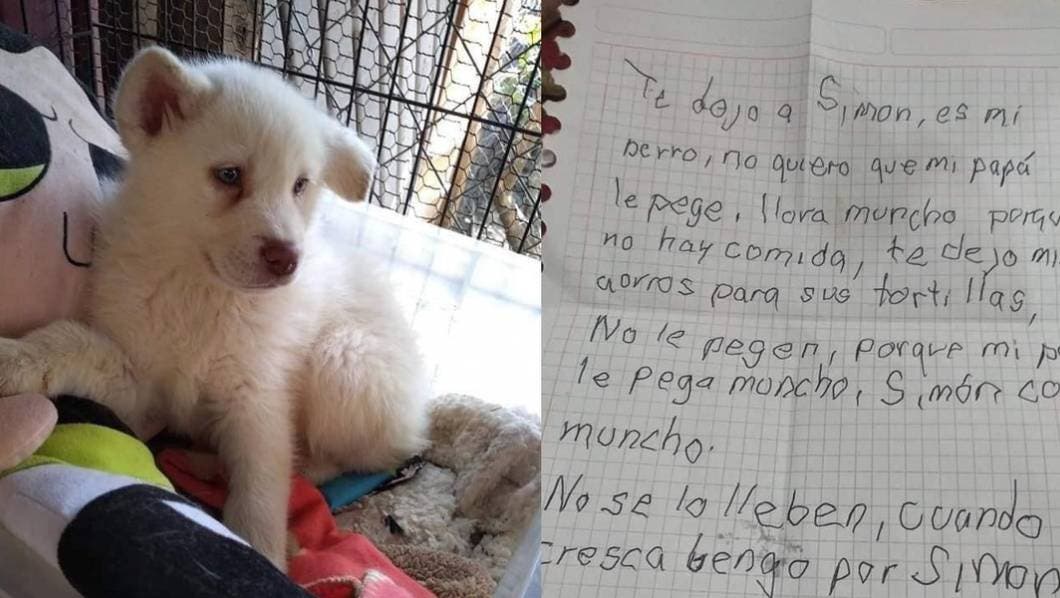 Te dejo a Simon, es mi
perro, no quiero que mi papá
le pege, llora muncho porq
no hay comida, te dejo mi
aorros para sus tortillas,
No le pegen, porque mi p
le pega muncho, Simón co
muncho.
No se lo lleben, cuando
cresca bengo por Simon